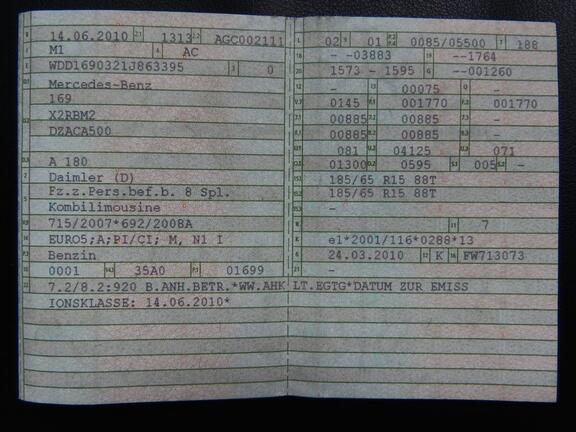 14.06.2010 2.1 1313 2.2 AGC002111
M1 4 AC
WDD1690321J863395 3 0
Mercedes-Benz
169
X2RBM2
DZACA500
A 180
Daimler (D)
Fz.z.Pers.bef.b. 8 Spl.
Kombilimousine
715/2007*692/2008A
EURO5;A;PI/CI; M, N1 I
Benzin
0001 35A0 01699
7.2/8.2:920 B.ANH.BETR.*WW.AHK LT.EGTG*DATUM ZUR EMISS
IONSKLASSE: 14.06.2010*
02 9 01 0085/05500 T 188
- -03883 --1764
1573 - 1595 --001260
- 00075 -
0145 001770 001770
00885 00885 -
00885 00885 -
081 04125 071
01300 0595 005 -
185/65 R15 88T
185/65 R15 88T
-
7
K e1*2001/116*0288*13
6 24.03.2010 17 K 16 FW713073
21 -